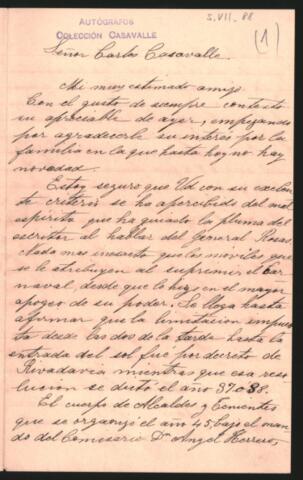 AUTÓGRAFOS
COLECCIÓN CASAVALLE
5. VII. 88
(1)
Señor Carlos Casavalle.
Mi muy estimado amigo:
Con el gusto de siempre contesto
su apreciable de ayer, empezando
por agradecerle su interés por la
familia en la que hasta hoy no hay
novedad.
Estoy seguro que Ud con su exclente
criterio se ha apercibido del mal
espíritu que ha guiado la pluma del
escritor al hablar del General Rosas.
Nada mas inesacto que los moviles que
se le atribuyen al suprimir el Car
naval, desde que lo hizo en el mayor
apogeo de su poder. Se llega hasta
afirmar que la limitacion impues
ta desde las dos de la tarde hasta la
entrada del sol fue por decreto de
Rivadavia mientras que esa reso
lucion se dictó el año 37 o 38.
El cuerpo de Alcaldes y Tenientes
que se organizó el año 45, bajo el man
do del Comisario Dn Angel Herrero,